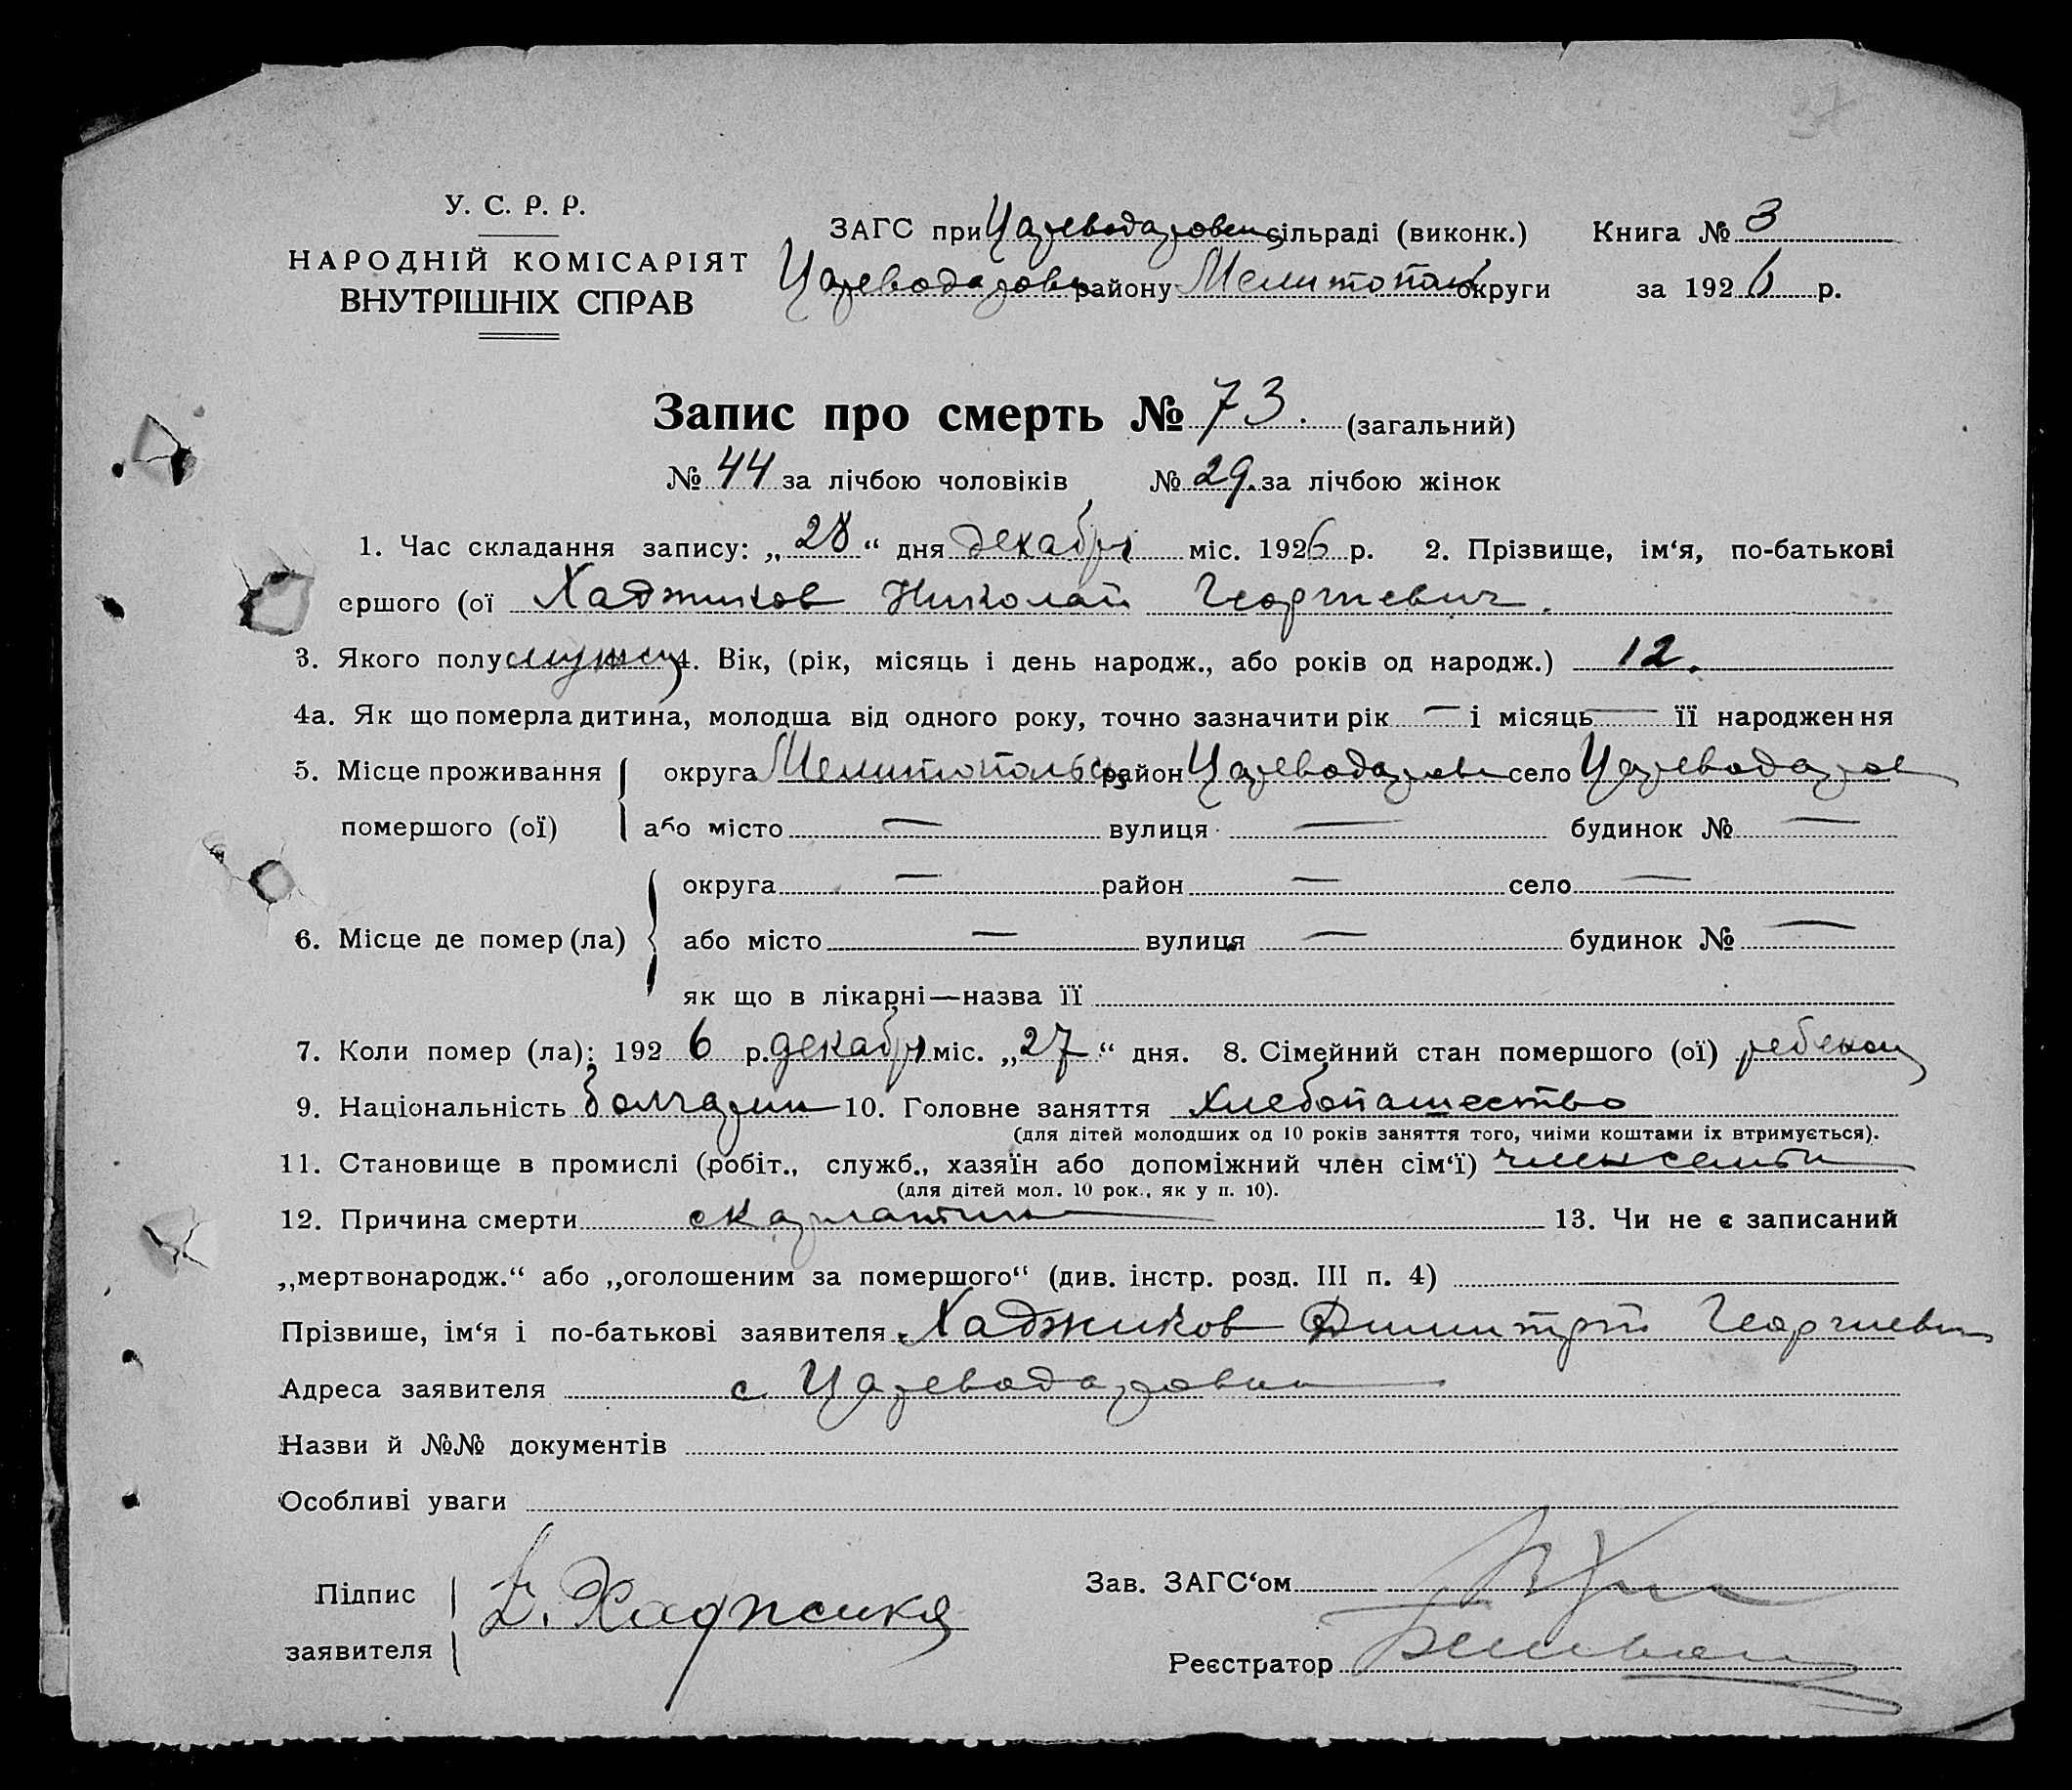 37
У. С. Р. Р.
НАРОДНІЙ КОМІСАРІЯТ
ВНУТРІШНІХ СПРАВ
ЗАГС при Цареводаровск сільраді (виконк.) Книга № 3
Цареводаровск району Мелитополь округи за 1926 р.
Запис про смерть № 73. (загальний)
№ 44 за лічбою чоловіків № 29. за лічбою жінок
1. Час складання запису: „28“ дня декабря міс. 1926 р. 2. Прізвище, ім‘я, по-батькові
ершого (ої Хаджиков Николай Георгиевич.
3. Якого полу мужск 4. Вік, (рік, місяць і день народж., або років од народж.) 12.
4а. Як що померла дитина, молодша від одного року, точно зазначити рік — і місяць — її народження
5. Місце проживання округа Мелитопольск район Цареводаровск село Цареводаров
помершого (ої) або місто — вулиця — будинок № —
округа — район — село —
6. Місце де помер (ла) або місто — вулиця — будинок № —
як що в лікарні—назва її
7. Коли помер (ла): 1926 р. декабря міс. „27“ дня. 8. Сімейний стан помершого (ої) ребенок
9. Національність болгарин 10. Головне заняття хлебопашество
(для дітей молодших од 10 років заняття того, чиїми коштами їх втримується).
11. Становище в промислі (робіт., служб., хазяїн або допоміжний член сім‘ї) член семьи
(для дітей мол. 10 рок., як у п. 10).
12. Причина смерти скарлатина 13. Чи не є записаний
„мертвонародж.“ або „оголошеним за помершого“ (див. інстр. розд. III п. 4)
Прізвише, ім‘я і по-батькові заявителя Хаджиков Димитрий Георгиевич
Адреса заявителя с. Цареводаровка
Назви й №№ документів
Особливі уваги
Підпис
заявителя
Д. Хаджика
Зав. ЗАГС‘ом
Реєстратор